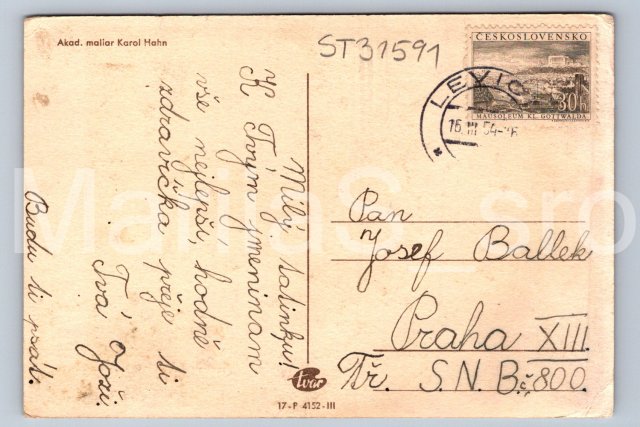 Akad. maliar Karol Hahn
ST31591
ČESKOSLOVENSKO
30h
MAUSOLEUM KL. GOTTWALDA
LEVIC
15.III.54-16
Milý tatínku!
K Tvým jmeninám
vše nejlepší, hodně
zdravíčka přeje ti
Tvá Joži.
Budu ti psát.
Pan
Josef Ballek
Praha XIII.
Tř. S.N.B. č. 800.
tvar
17-P 4152-III
MartiaS_sro